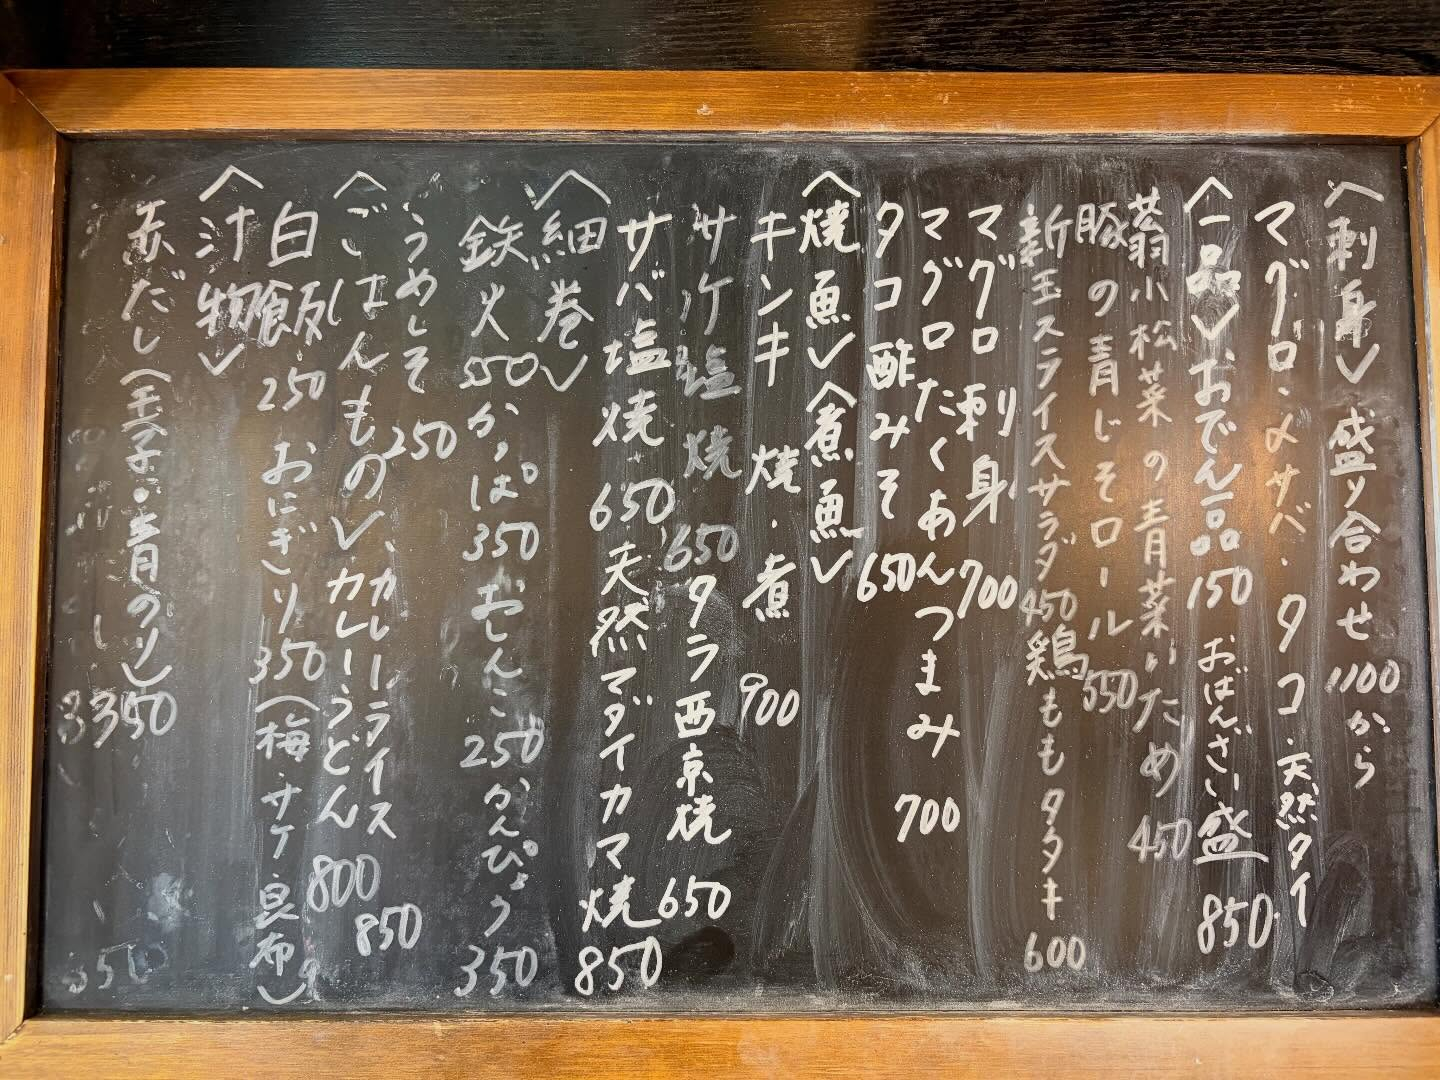 〈刺身〉盛り合わせ 1100から
マグロ・〆サバ・タコ・天然タイ
〈一品〉おでん一品 150 おばんざい盛 850
蓊小松菜の青菜いため 450
豚の青じそロール 550
新玉スライスサラダ 450 鶏ももタタキ 600
マグロ刺身 700
マグロたくあんつまみ 700
タコ酢みそ 650
〈焼魚〉〈煮魚〉
キンキ 焼・煮 900
サケ塩焼 650 タラ西京焼 650
サバ塩焼 650 天然マダイカマ焼 850
〈細巻〉
鉄火 550 かっぱ 350 おしんこ 250 かんぴょう 350
うめしそ 250
〈ごはんもの〉カレーライス 850
カレーうどん 800
白飯 250 おにぎり 350（梅・サケ・昆布）
〈汁物〉
赤だし（玉子・青のり） 350